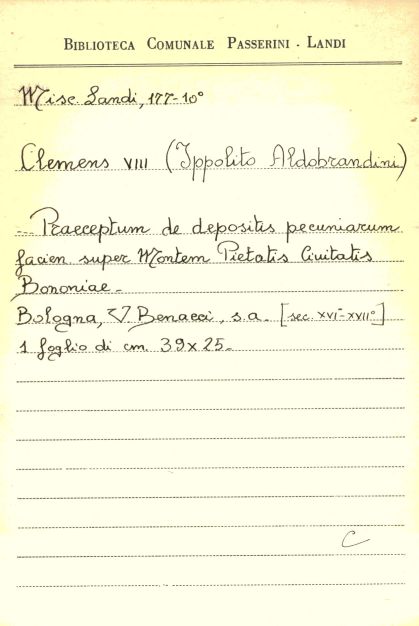 BIBLIOTECA COMUNALE PASSERINI - LANDI
Misc. Landi, 177-10°
Clemens VIII (Ippolito Aldobrandini)
... Praeceptum de depositis pecuniarum
facien. super Montem Pietatis Civitatis
Bononiae -
Bologna, V. Benacci, s.a. [sec. XVI-XVII°]
1 foglio di cm. 39x25.
C